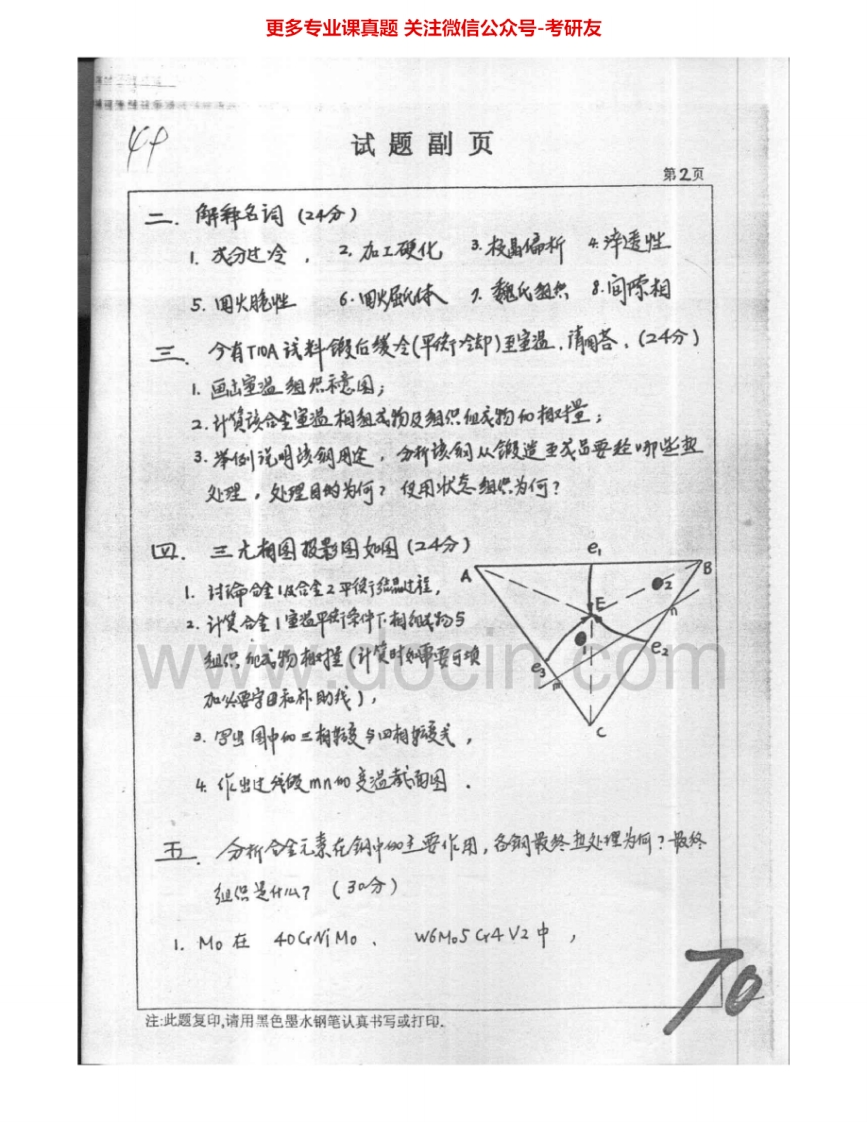 更多专业课真题 关注微信公众号-考研友
试题副页
第2页
二. 解释名词 (24分)
1. 成分过冷, 2. 加工硬化 3. 枝晶偏析 4. 淬透性
5. 回火脆性 6. 回火屈氏体 7. 魏氏组织 8. 间隙相
三. 今有T10A试料锻后缓冷(平衡冷却)至室温,请回答, (24分)
1. 画出室温组织示意图;
2. 计算该合金室温相组成物及组织组成物的相对量;
3. 举例说明该钢用途,分析该钢从锻造至成品要经哪些热
处理,处理目的为何?使用状态组织为何?
四. 三元相图投影图如图 (24分)
1. 讨论合金1及合金2平衡结晶过程,
2. 计算合金1室温平衡条件下相组成物与
组织组成物相对量(计算时如需要可项
加必要字母和补助线),
3. 写出图中的三相转变与四相转变式,
4. 作出过线段mn的变温截面图.
A
e1
B
2
E
n
e2
e3
m
C
五. 分析合金元素在钢中的主要作用,各钢最终热处理为何?最终
组织是什么? (30分)
1. Mo 在 40CrNiMo、 W6Mo5Cr4V2中,
70
注:此题复印,请用黑色墨水钢笔认真书写或打印.
www.docin.com